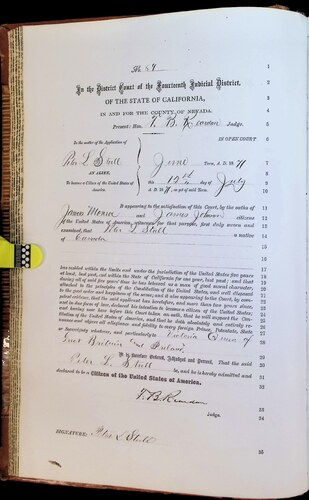 No 47
In the District Court of the Fourteenth Judicial District,
OF THE STATE OF CALIFORNIA,
IN AND FOR THE COUNTY OF NEVADA.
Present: Hon. T. B. Reardan Judge.
IN OPEN COURT
In the matter of the Application of
Peter L. Stull
AN ALIEN,
To become a Citizen of the United States of America.
June Term, A. D. 1871
this 12th day of July
A. D. 1871, as yet of said Term.
It appearing to the satisfaction of this Court, by the oaths of
James Monroe and James Johnson citizens
of the United States of America, witnesses for that purpose, first duly sworn and
examined, that Peter L Stull a native
of Canada
has resided within the limits and under the jurisdiction of the United States five years
at least, last past, and within the State of California for one year, last past; and that
during all of said five years' time he has behaved as a man of good moral character,
attached to the principles of the Constitution of the United States, and well disposed
to the good order and happiness of the same; and it also appearing to the Court, by com-
petent evidence, that the said applicant has heretofore, and more than two years since,
and in due form of law, declared his intention to become a citizen of the United States;
and having now here before this Court taken an oath, that he will support the Con-
stitution of the United States of America, and that he doth absolutely and entirely re-
nounce and abjure all allegiance and fidelity to every foreign Prince, Potentate, State
or Sovereignty whatever, and particularly to Victoria Queen of
Great Britain and Ireland
It is therefore Ordered, Adjudged and Decreed, That the said
Peter L. Stull be, and he is hereby admitted and
declared to be a Citizen of the United States of America.
T. B. Reardan
Judge.
SIGNATURE: Peter L Stull
1
2
3
4
5
6
7
8
9
10
11
12
13
14
15
16
17
18
19
20
21
22
23
24
25
26
27
28
29
30
31
32
33
34
35